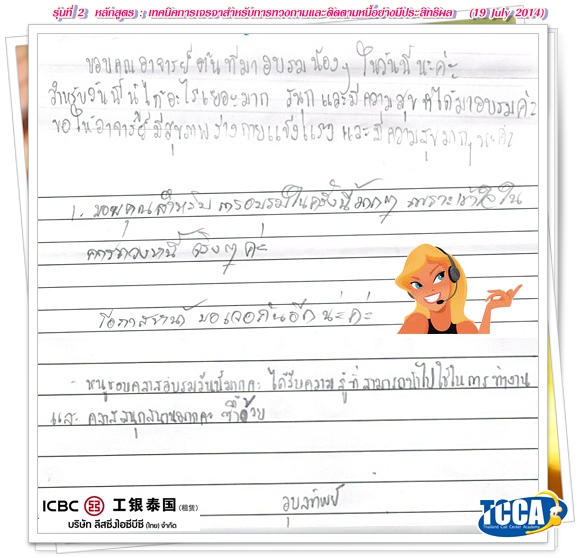 รุ่นที่ 2 หลักสูตร : เทคนิคการเจรจาสำหรับการทวงถามและติดตามหนี้อย่างมีประสิทธิผล (19 July 2014)
ขอบคุณอาจารย์ ที่มาอบรมน้องๆ ในวันนี้ นะค่ะ
สำหรับวันนี้ได้อะไรเยอะมาก และมีความสุข ที่ได้มาอบรมค่ะ
ขอให้อาจารย์มีสุขภาพร่างกายแข็งแรง และมีความสุขมากๆ นะค่ะ
1. ขอบคุณสำหรับการอบรมในครั้งนี้มากๆ เพราะเข้าใจใน
การทวงหนี้ จริงๆ ค่ะ
โอกาสหน้า ขอเจอกันอีกน่ะค่ะ
- หนูชอบคลาสอบรมวันนี้มากคะ ได้รับความรู้ที่สามารถนำไปใช้ในการทำงาน
และ คลาสสนุกสนานมากคะ
อุบลทิพย์
ICBC 工银泰国 (租赁)
บริษัท ลีสซิ่งไอซีบีซี (ไทย) จำกัด
TCCA
Thailand Call Center Academy